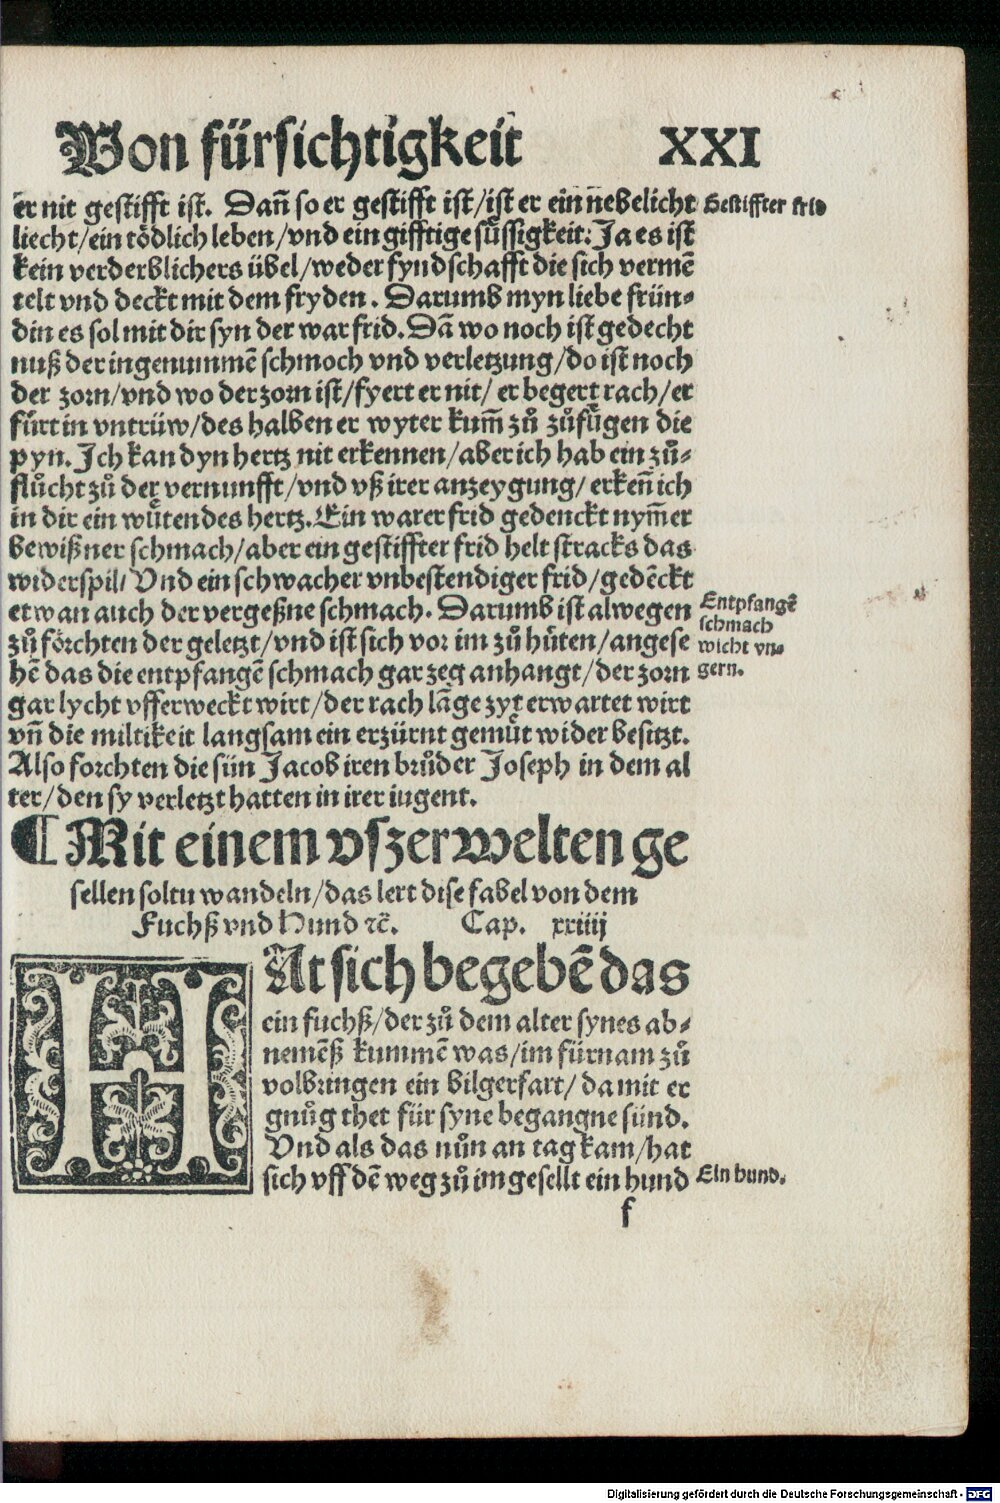 Von fürsichtigkeit XXI
er nit gestifft ist. Dañ so er gestifft ist/ist er ein nebelicht
Gestiffter frid
liecht/ein tödlich leben/vnd ein gifftige süssigkeit: Ja es ist
kein verderblichers übel/weder fyndschafft die sich vermē
telt vnd deckt mit dem fryden. Darumb myn liebe frün⸗
din es sol mit dir syn der war frid. Dā wo noch ist gedecht
nuß der ingenunmē schmoch vnd verletzung/do ist noch
der zorn/vnd wo der zorn ist/fyert er nit/ er begert rach/er
fürt in vntrüw/des halben er wyter kum̃ zů zůfügen die
pyn. Ich kan dyn hertz nit erkennen/aber ich hab ein zů⸗
flůcht zů der vernunfft/vnd vß irer anzeygung/ erkeñ ich
in dir ein wütendes hertz. Ein warer frid gedenckt nym̃er
bewißner schmach/aber ein gestiffter frid helt stracks das
widerspil/ Vnd ein schwacher vnbestendiger frid/gedēckt
etwan auch der vergeßne schmach. Darumb ist alwegen
zů förchten der geletzt/vnd ist sich vor im zů hüten/angese
hē das die entpfangē schmach gar zeg anhangt/der zorn
Entpfangē
schmach
wicht vn⸗
gern.
gar lycht vfferweckt wirt/der rach lāge zyt erwartet wirt
vñ die miltikeit langsam ein erzürnt gemüt wider besitzt.
Also forchten die sün Jacob iren brůder Joseph in dem al
ter/den sy verletzt hatten in irer iugent.
¶ Mit einem vszerwelten ge
sellen soltu wandeln/das lert dise fabel von dem
Fuchß vnd Hund ꝛc̄. Cap. xxiiij
HAt sich begebē das
ein fuchß/der zů dem alter synes ab⸗
nemēß kummē was/im fürnam zů
volbringen ein bilgerfart/da mit er
gnůg thet für syne begangne sünd.
Vnd als das nůn an tag kam/hat
sich vff dē weg zů im gesellt ein hund
Ein hund.
f
Digitalisierung gefördert durch die Deutsche Forschungsgemeinschaft - DFG